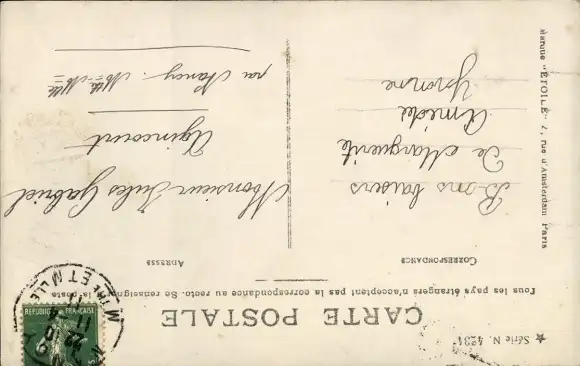 CARTE POSTALE
Tous les pays étrangers n'acceptent pas la correspondance au recto. Se renseigner à la poste
CORRESPONDANCE
ADRESSE
Bons baisers
De Marguerite
Amédée
Yvonne
Monsieur Jules Gabriel
Agincourt
par Nancy. Mthe Mlle
★ Série N. 4234
Marque "ÉTOILE" 2, rue d'Amsterdam Paris
RÉPUBLIQUE FRANÇAISE
MTHE ET MLLE